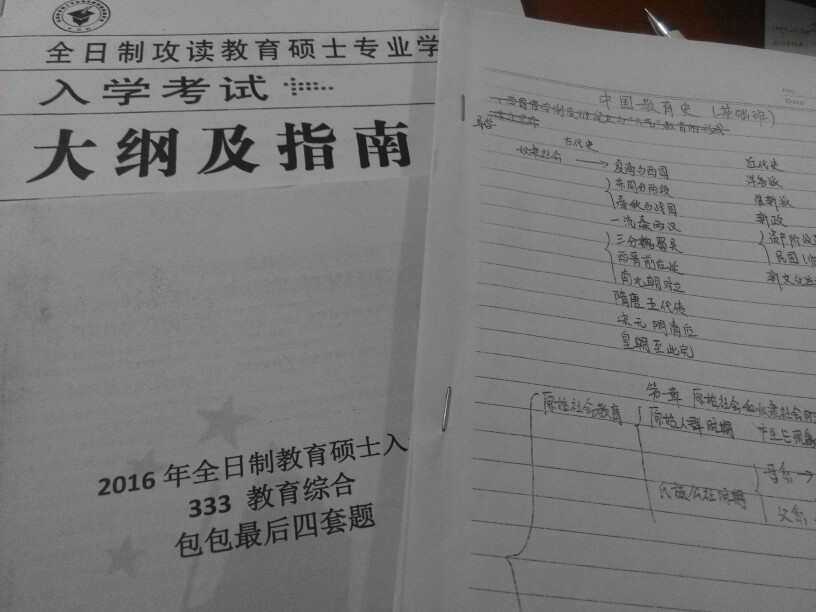 全日制攻读教育硕士专业学
入学考试
大纲及指南
2016年全日制教育硕士入
333 教育综合
包包最后四套题
中国教育史（基础班）
古代史
奴隶社会 → 夏商与西周
东周分两段
春秋与战国
一统秦两汉
三分魏蜀吴
西晋前后延
南北朝对立
隋唐五代传
宋元明清后
皇朝至此完
近代史
洋务派
维新派
新政
资产阶级
民国
新文化运
第一章 原始社会和奴隶社会的
原始社会教育
原始人群时期
氏族公社时期
母系 →
父系